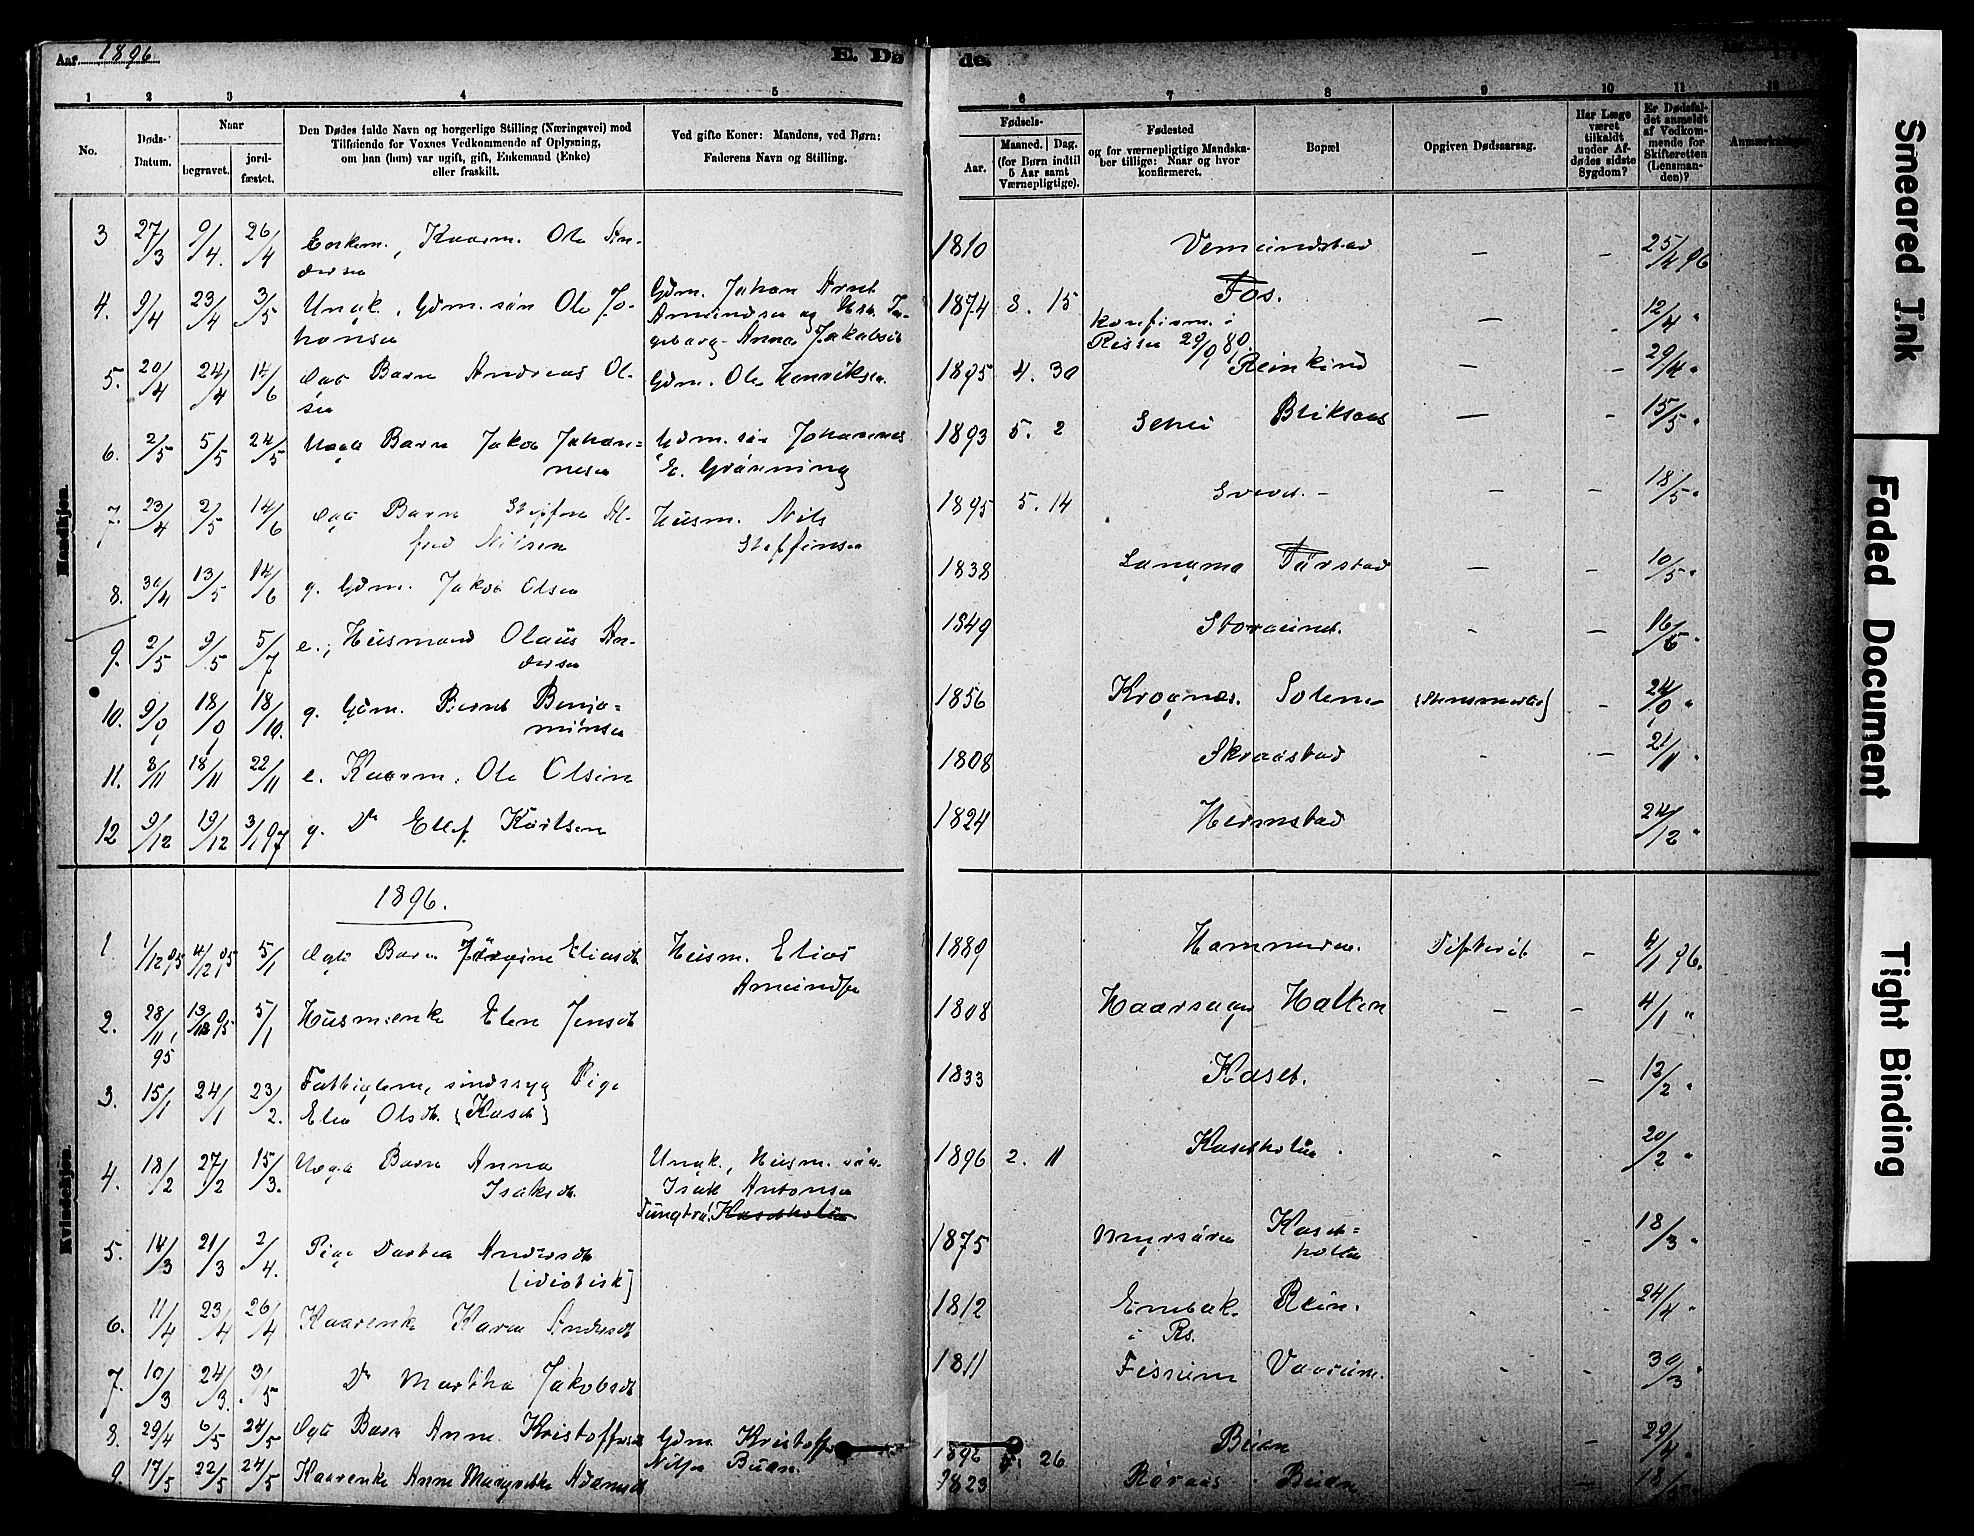 Aar 1896
E. Dø de.
1 2 3 4 5 6 7 8 9 10 11 12
No.
Døds-
Datum.
Naar
begravet.
jord-
fæstet.
Den Dødes fulde Navn og borgerlige Stilling (Næringsvei) med
Tilføiende for Voxnes Vedkommende af Oplysning,
om han (hun) var ugift, gift, Enkemand (Enke)
eller fraskilt.
Ved gifte Koner: Mandens, ved Børn:
Faderens Navn og Stilling.
Fødsels-
Aar.
Maaned. Dag.
(for Børn indtil
5 Aar samt
Værnepligtige).
Fødested
og for værnepligtige Mandska-
ber tillige: Naar og hvor
konfirmeret.
Bopæl
Opgiven Dødsaarsag.
Har Læge
været
tilkaldt
under Af-
dødes sidste
Sygdom?
Er Dødsfal-
det anmeldt
af Vedkom-
mende for
Skifteretten
(Lensman-
den)?
Anmærkninger.
Mandkjøn.
3 27/3 9/4. 26/4 Enkem., Kaarm. Ole An-
dersen 1810 Vemundstad - - 25/4 96
4. 9/4 23/4 3/5 Ungk., Gdm. søn Ole Jo-
hansen
Gdm. Johan Arnt
Amundsen og Hstr. In-
geborg Anna Jakobsd.
1874 8. 15 Fos. - 12/4 "
konfirm. i
Rissa
5. 20/4 24/4 14/6 Ægte Barn Andreas Ol-
sen Gdm. Ole Henriksen 1895 4. 30 Reinkind - - 29/4 "
6. 2/5 5/5 24/5 Uægte Barn Jakob Johan=
nesen
Gdm. søn Johannes
E. Grønning
1893 5. 2 Schei Bliksaas - - 15/5 "
7. 23/4 2/5 14/6 Ægte Barn Steffen Al-
fred Nilsen
Husm. Nils
Steffensen
1895 5. 14 - - 18/5 "
8. 30/4 13/5 14/6 g. Gdm. Jakob Olsen 1838 Langmo Førstad - - 10/5 "
9. 2/5 9/5 5/7 e., Husmand Olaus An-
dersen 1849 - - 16/5 "
10. 9/9 18/9 18/10. g. Gdm. Bernt Benja=
minsen 1856 Krognes. Solem - 24/9 "
11. 8/11 18/11 22/11 e. Kaarm. Ole Olsen 1808 Skraastad - - 21/11 "
12 9/12 19/12 3/1 97 g. Do Ellef Karlsen 1824 Hermstad 24/12 "
Kvindekjøn.
1896.
1 1/12 95 4/12 95 5/1 Ægte Barn Jørgine Eliasdt.
Husm. Elias
Amundsen
1889 Hammeren. Difterit - 4/1 96.
2. 28/11 95 13/12 95 5/1 Husmenke Elen Jensdt. 1808 Haarsager Halten - - 4/1 "
3. 15/1 24/1 23/2. Fattiglem, sindssyg Pige
Elen Olsdt. (Kaset) 1833 Kaset. - - 12/2 "
4. 18/2 27/2 15/3. Uægte Barn Anna
Isaksdt.
Ungk., Husm. søn
Isak Antonsen
1896 2. 11 Kasetholm. - 20/2 "
5. 14/3 21/3 2/4. Pige Dortea Andersdt.
(idiotisk) 1875 Myrsøren Kaset=
holm - 18/3 "
6. 11/4 23/4 26/4 Kaarenke Karen Andersdt. 1812 Rein. - 24/4 "
i Rs.
7. 10/3 24/3. 3/5 Do Martha Jakobsdt. 1811 Fissum - 30/3 "
8. 29/4 6/5 24/5 Ægte Barn Anne Kristoffersdt. Gdm. Kristoffer
Nilsen Buan. 1896 26 Buan - 29/4 "
9. 17/5 22/5 24/5 Kaarenke Anne Margrethe Adamsdt 1823 Røraas Buan - - 18/5 "
Smeared Ink
Faded Document
Tight Binding